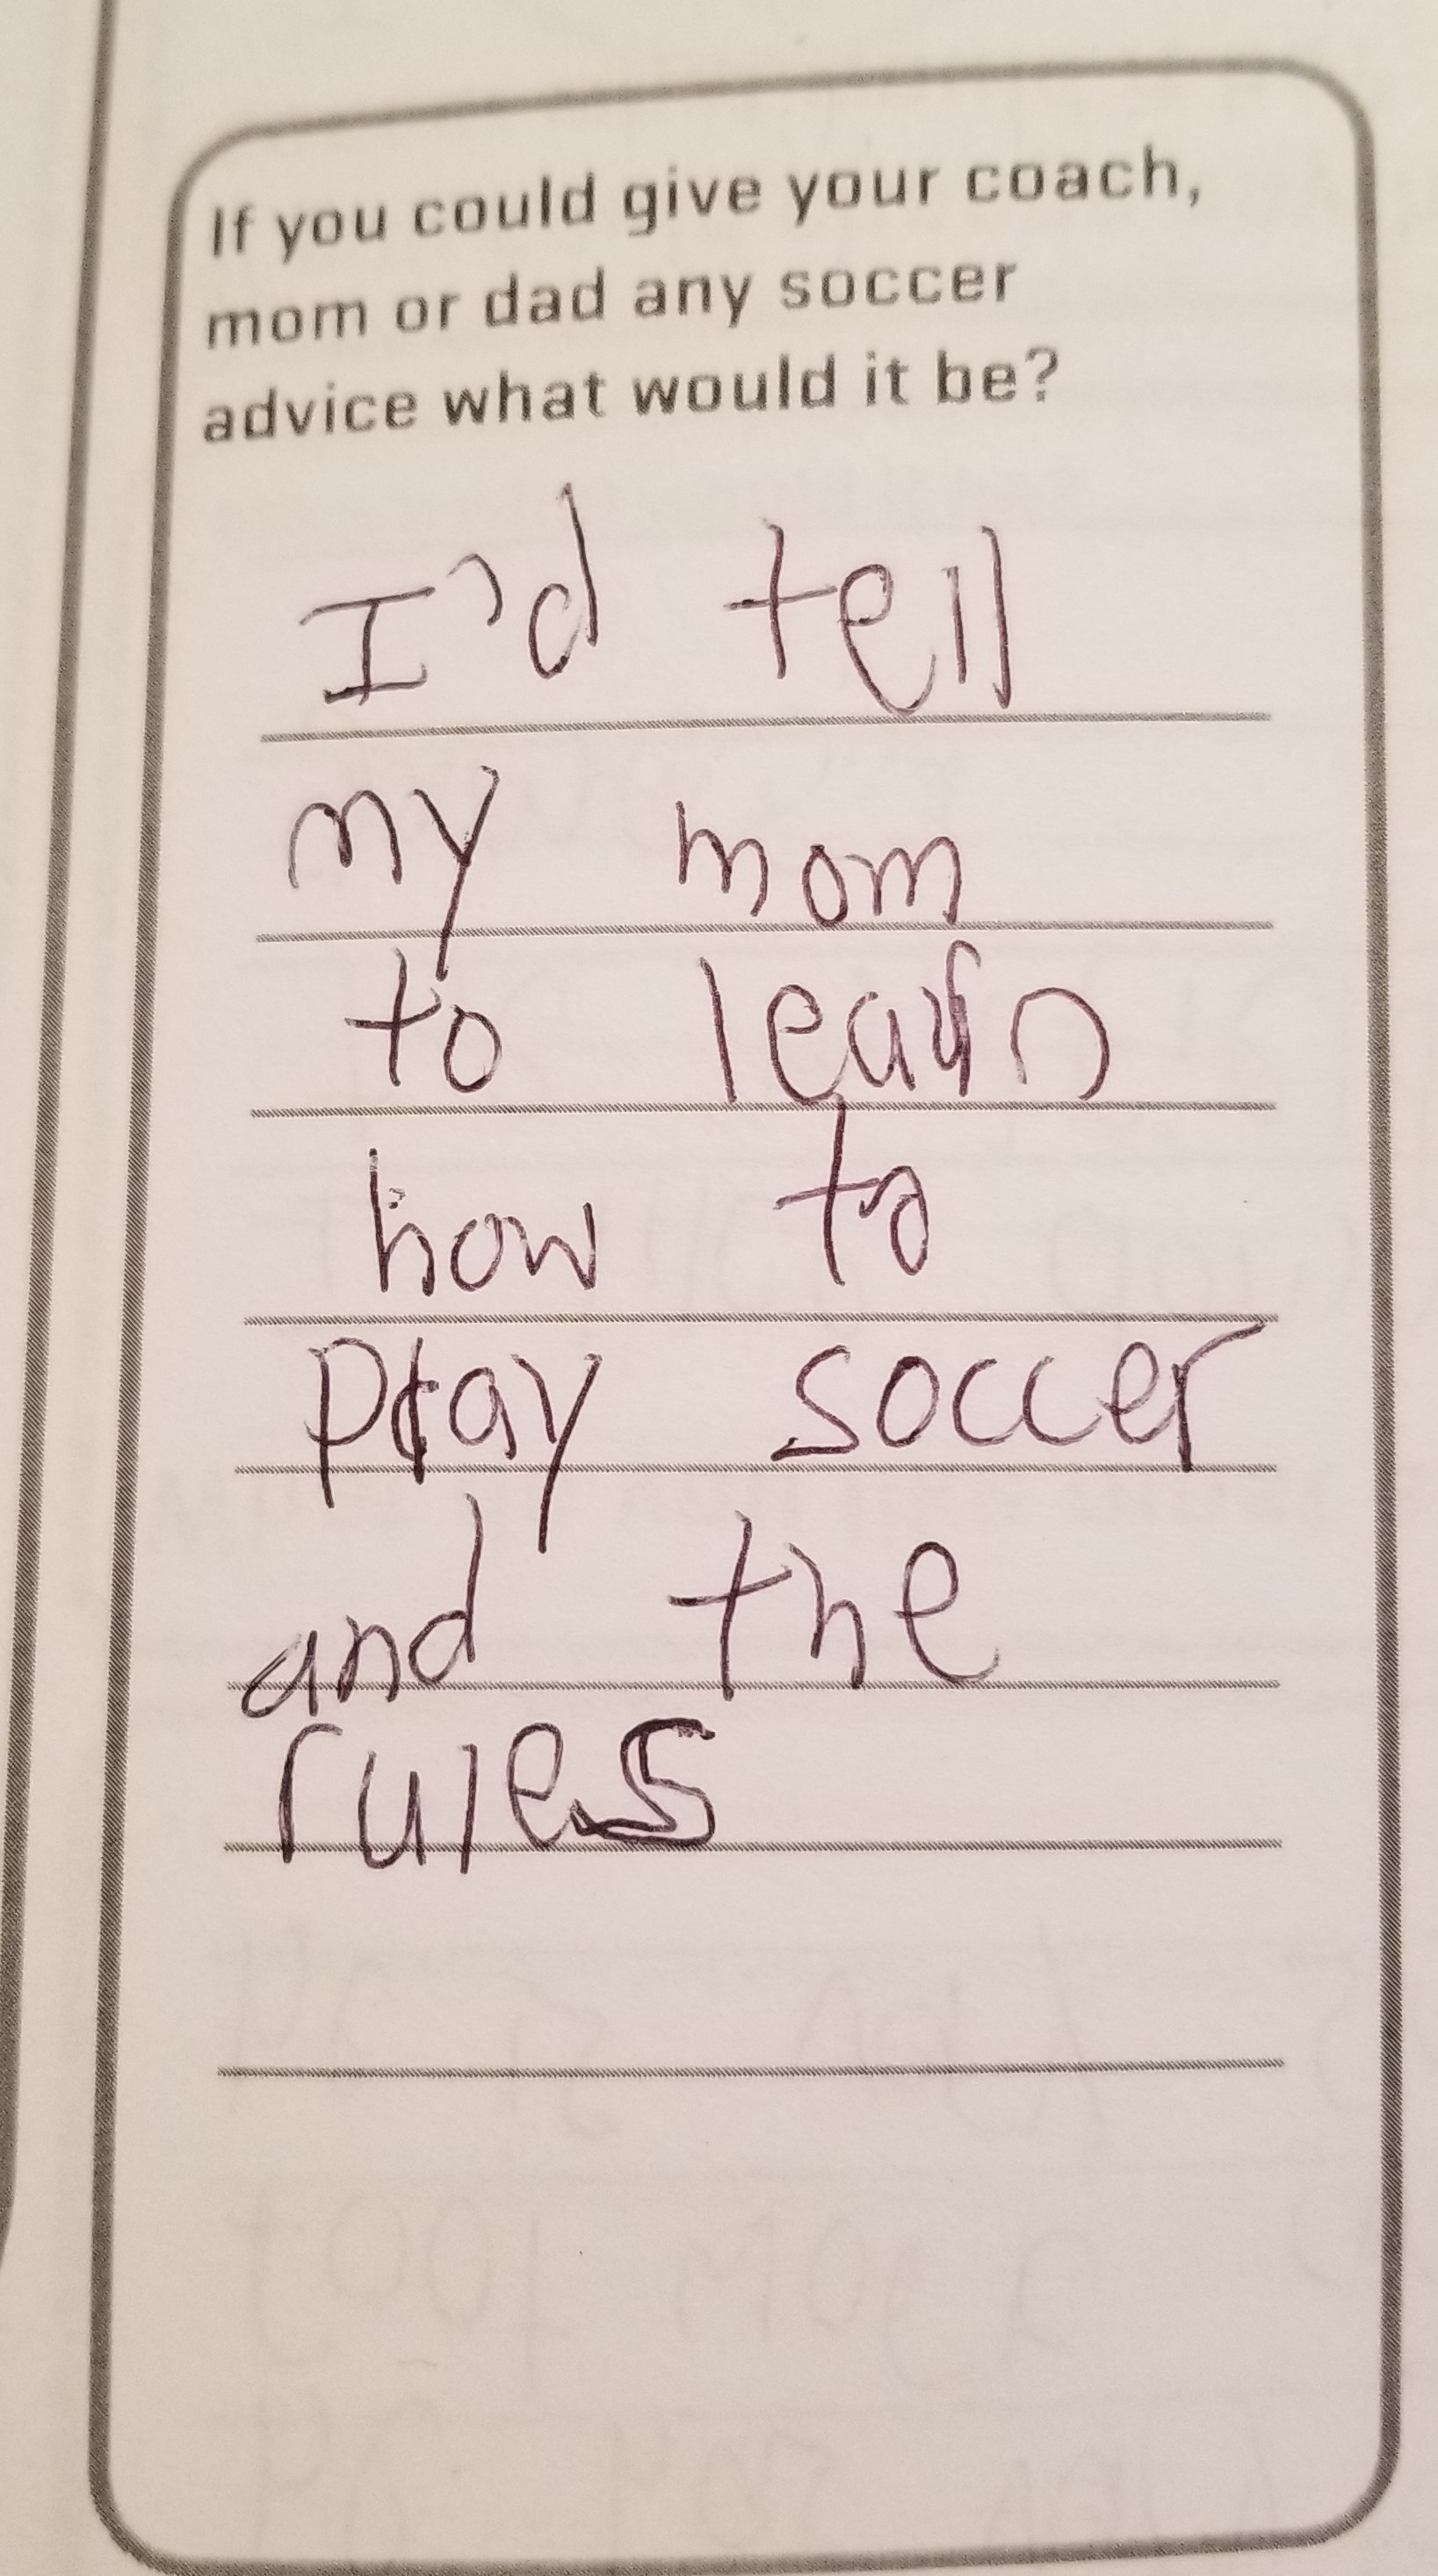 If you could give your coach,
mom or dad any soccer
advice what would it be?
I'd tell
my mom
to learn
how to
play soccer
and the
rules